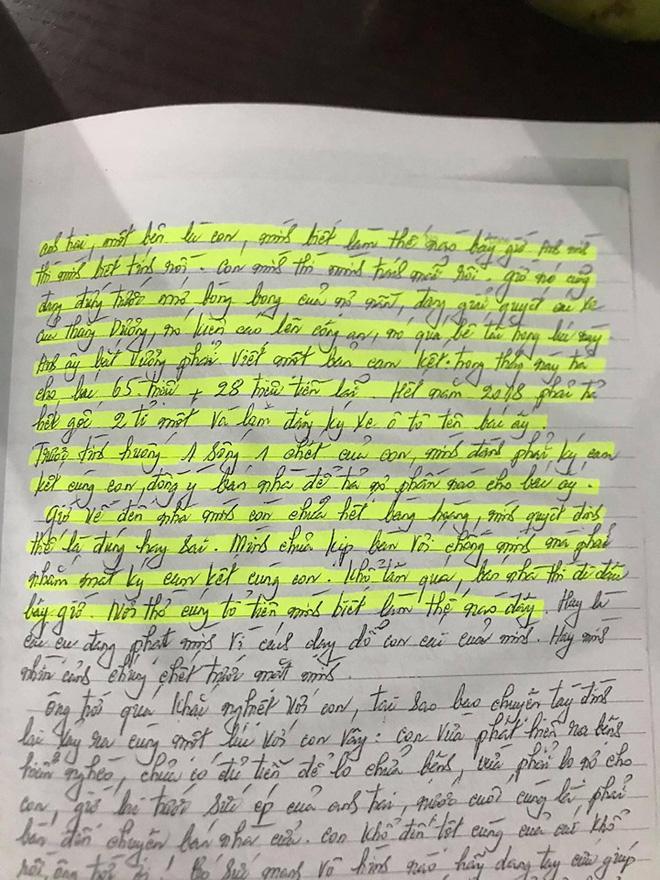 anh hai, một bên là con, mình biết làm thế nào bây giờ. Anh mình
thì mình biết tính rồi. Con mình thì mình hiểu mà rồi. giờ nó cũng
đang đứng trước nợ bòng bong của nó nữa, đang giải quyết cái xe
của thằng Dưỡng, nó kiện cáo lên công an, nó qua bể tài
Anh ấy bắt Vương phải viết một bản cam kết. trong tháng này trả
cho bác 65 triệu + 28 triệu tiền lãi. Hết năm 2018 phải trả
hết gốc 2 tỉ mốt và làm đăng ký xe ô tô tên bác ấy.
Trước tình huống 1 sống 1 chết của con, mình đành phải ký cam
kết cùng con, đồng ý bán nhà để trả nợ phần nào cho bác ấy.
Giờ về đến nhà mình còn chưa hết bàng hoàng, mình quyết định
thế là đúng hay sai. Mình chưa kịp bàn với chồng mình mà phải
nhắm mắt ký cam kết cùng con. Khổ tâm quá, bán nhà thì đi đâu
bây giờ. Nơi thờ cúng tổ tiên mình biết làm thế nào đây. Hay là
các cụ đang phạt mình vì cách dạy dỗ con cái của mình. Hay mình
nhìn cảnh chúng chết trước mắt mình.
Ông trời quá khắc nghiệt với con, tại sao bao chuyện tày đình
lại xảy ra cùng một lúc với con vậy: con vừa phát hiện ra bệnh
hiểm nghèo, chưa có đủ tiền để lo chữa bệnh, vừa phải lo nợ cho
con, giờ lại trước sức ép của anh trai, nước cuối cùng là phải
bàn đến chuyện bán nhà cửa. con khổ đến tột cùng của cái khổ
rồi, ông trời ơi! Có sức mạnh vô hình nào hãy dang tay cứu giúp